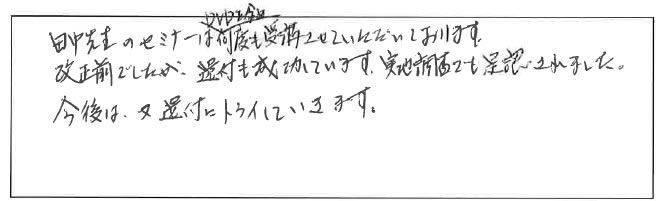 DVDを含め
田中先生のセミナーは何度も受講させていただいております。
改正前でしたが、還付も成功しています。実地調査でも是認されました。
今後は、又還付にトライしていきます。